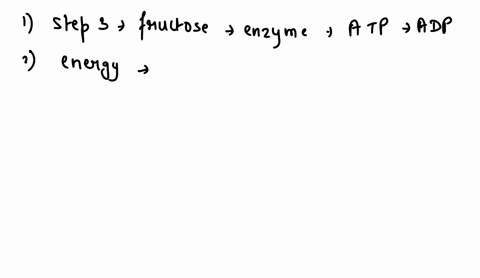 1) Step 3 → fructose → enzyme → ATP → ADP
2) energy →